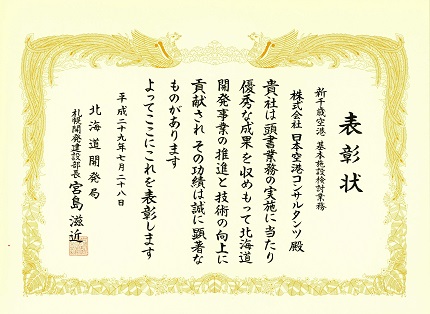 表彰状
新千歳空港 基本施設検討業務
株式会社 日本空港コンサルタンツ 殿
貴社は頭書業務の実施に当たり
優秀な成果を収めもって北海道
開発事業の推進と技術の向上に
貢献され その功績は誠に顕著な
ものがあります
よってここにこれを表彰します
平成二十九年七月二十八日
北海道開発局
札幌開発建設部長 宮島滋近